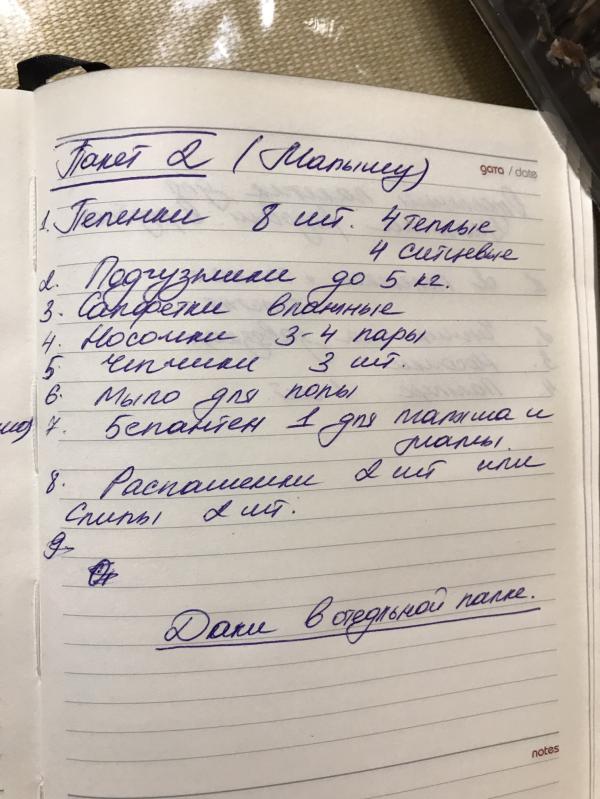 Пакет 2 (Малышу)
дата / date
1. Пеленки 8 шт. 4 теплые
4 ситцевые
2. Подгузники до 5 кг.
3. Салфетки влажные
4. Носочки 3-4 пары
5. Чепчики 3 шт.
6. Мыло для попы
7. Бепантен 1 для малыша и
мамы.
8. Распашенки 2 шт или
Слипы 2 шт.
9.
Доки в отдельной папке.
notes